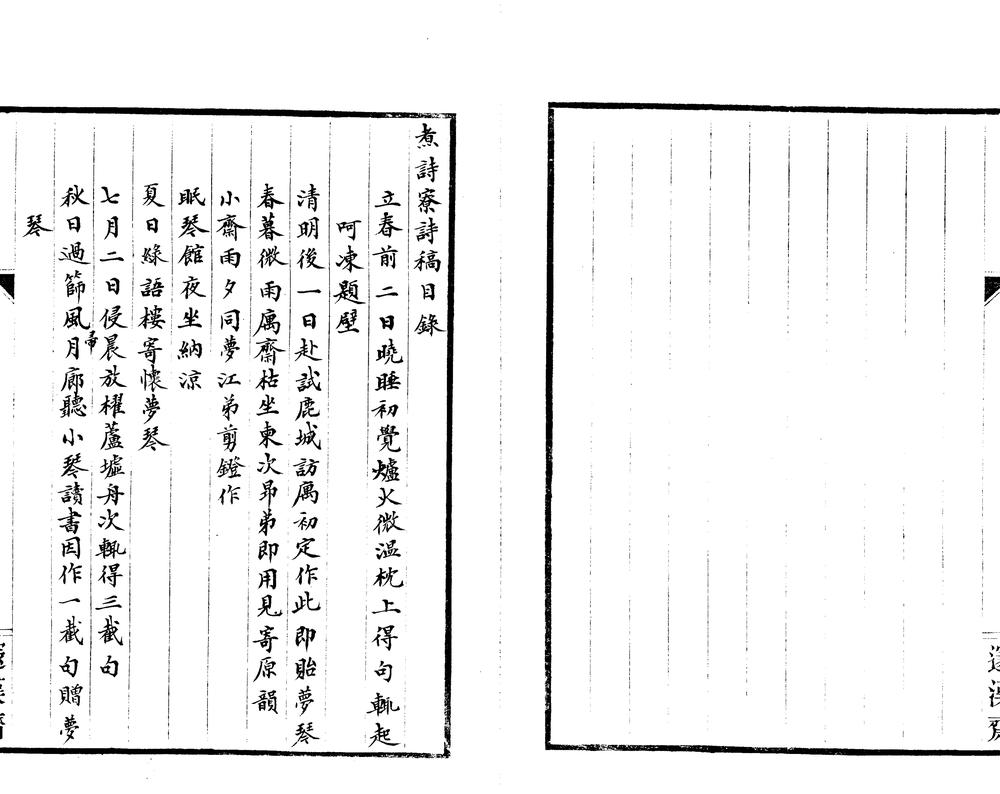 煮詩寮詩稿目錄
立春前二日曉睡初覺爐火微温枕上得句輒起
呵凍題壁
清明後一日赴試鹿城訪寓初定作此即貽夢琴
春暮微雨寓齋枯坐柬次昻弟即用見寄原韻
小齋雨夕同夢江弟剪鐙作
眠琴館夜坐納涼
夏日綠語樓寄懷夢琴
七月二日侵晨放櫂蘆墟舟次輒得三截句
秋日過篩風月廊聽小琴讀書因作一截句贈夢
帚
琴